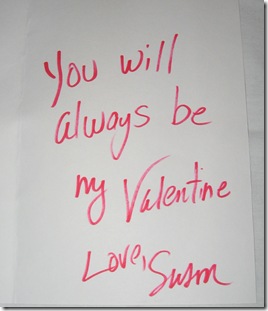 You will
always be
my Valentine
Love, Susan